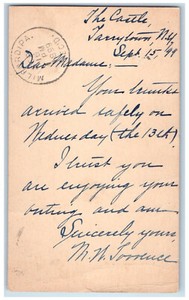 The Castle,
Tarrytown, N.Y.
Sept. 15, '99
Dear Madame:—
Your trunks
arrived safely on
Wednesday (the 13th).
I trust you
are enjoying your
outing and am
Sincerely yours,
M. W. Torrence
MILFORD, PA.